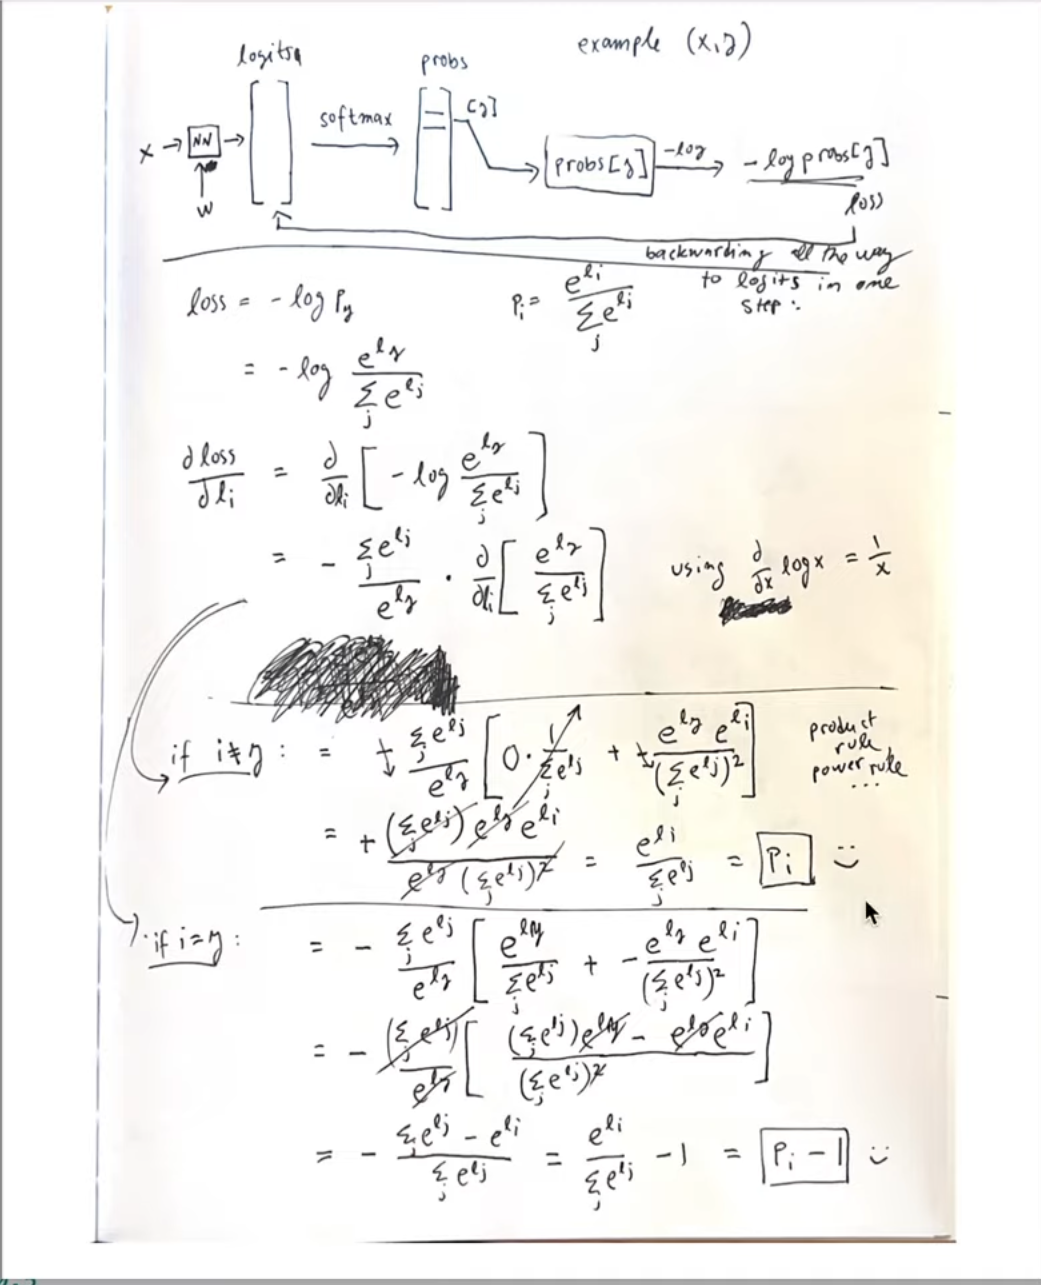 example (x,y)
logits
probs
x → NN →
softmax
[y]
probs[y]
-log
- log probs[y]
W
loss
backwarding all the way
to logits in one
step:
loss = - log Py
Pi = e^li / Σj e^lj
= - log e^ly / Σj e^lj
∂loss/∂li = ∂/∂li [ - log e^ly / Σj e^lj ]
= - Σj e^lj / e^ly · ∂/∂li [ e^ly / Σj e^lj ]
using ∂/∂x log x = 1/x
if i≠y : = + Σj e^lj / e^ly [ 0 · 1 / Σj e^lj + + e^ly e^li / (Σj e^lj)² ]
product
rule
power rule
...
= + (Σj e^lj) e^ly e^li / e^ly (Σj e^lj)² = e^li / Σj e^lj = Pi :)
if i=y : = - Σj e^lj / e^ly [ e^ly / Σj e^lj + - e^ly e^li / (Σj e^lj)² ]
= - (Σj e^lj) / e^ly [ (Σj e^lj) e^ly - e^ly e^li / (Σj e^lj)² ]
= - Σj e^lj - e^li / Σj e^lj = e^li / Σj e^lj - 1 = Pi - 1 :)